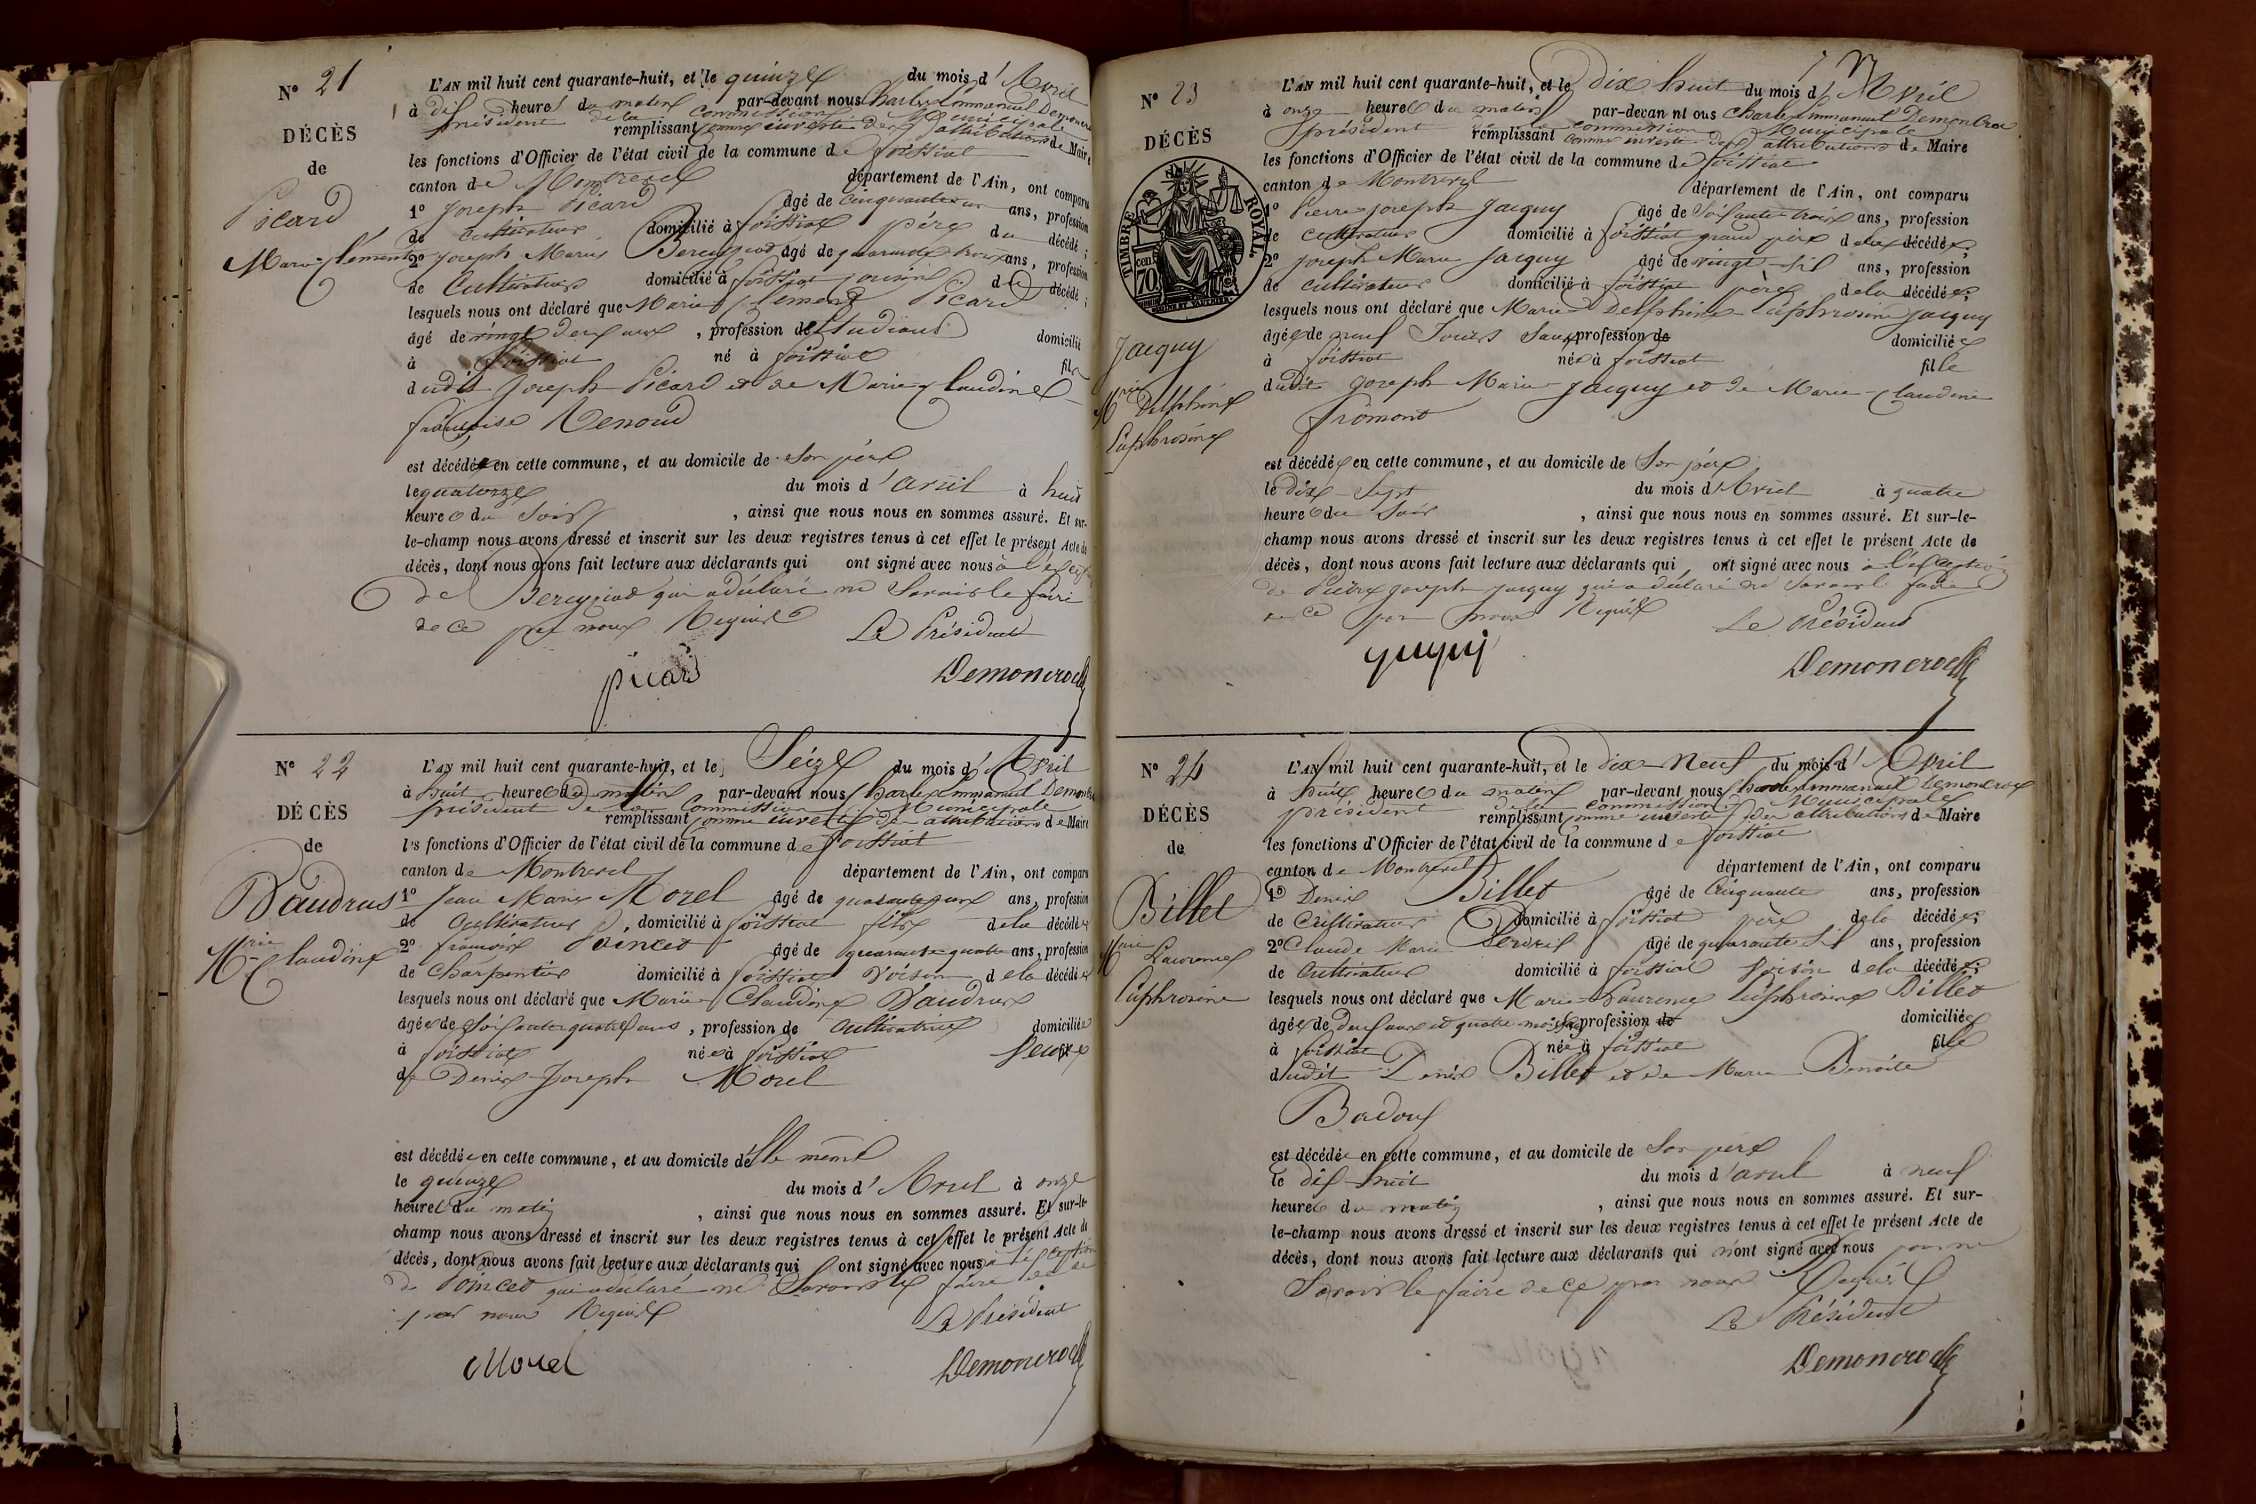 N° 21
DÉCÈS
de
Picard
Marie Clément
L'AN mil huit cent quarante-huit, et le quinze du mois d'Avril
à dix heures du matin par-devant nous Charles Emmanuel Demoncroz
président de la Commission Municipale
remplissant comme investi des attributions de Maire
les fonctions d'Officier de l'état civil de la commune de foissiat
canton de Montrevel département de l'Ain, ont comparu
1° Joseph Picard âgé de Cinquante un ans, profession
de cultivateur domicilié à foissiat père du décédé;
2° Joseph Marie âgé de quarante trois ans, profession
de Cultivateur domicilié à foissiat du décédé;
lesquels nous ont déclaré que Marie Clément Picard
âgé de vingt deux ans, profession de Etudiant domicilié
à foissiat né à foissiat fils
dudit Joseph Picard et de Marie Claudine
françoise Renoud
est décédé en cette commune, et au domicile de Son père
le quatorze du mois d'avril à huit
heure du Soir, ainsi que nous nous en sommes assuré. Et sur-
le-champ nous avons dressé et inscrit sur les deux registres tenus à cet effet le présent Acte de
décès, dont nous avons fait lecture aux déclarants qui ont signé avec nous à
de qui a déclaré ne Savoir le faire
de ce par nous Requis
Le Président
picard
Demoncroz
N° 22
DÉCÈS
de
Baudras
Mrie Claudine
L'AN mil huit cent quarante-huit, et le Seize du mois d'Avril
à huit heures du matin par-devant nous Charles Emmanuel Demoncroz
président de la Commission Municipale
remplissant comme investi des attributions de Maire
les fonctions d'Officier de l'état civil de la commune de foissiat
canton de Montrevel département de l'Ain, ont comparu
1° Jean Marie Morel âgé de ans, profession
de Cultivateur, domicilié à foissiat fils de la décédée
2° françois Poincet âgé de quarante quatre ans, profession
de Charpentier domicilié à foissiat Voisin de la décédée
lesquels nous ont déclaré que Marie Claudine Baudras
âgée de Soixante quatre ans, profession de Cultivatrice domiciliée
à foissiat née à foissiat Veuve
de Denis Joseph Morel
est décédée en cette commune, et au domicile d'Elle même
le quinze du mois d'Avril à onze
heures du matin, ainsi que nous nous en sommes assuré. Et sur-le-
champ nous avons dressé et inscrit sur les deux registres tenus à cet effet le présent Acte de
décès, dont nous avons fait lecture aux déclarants qui ont signé avec nous à l'exception
de Poincet qui a déclaré ne Savoir le faire de ce
par nous Requis
Le Président
Morel
Demoncroz
N° 23
DÉCÈS
TIMBRE ROYAL
70
Jacquy
Mrie Delphine
Euphrosine
L'AN mil huit cent quarante-huit, et le dix huit du mois d'Avril
à onze heures du matin par-devan nt ous Charles Emmanuel Demoncroz
président de la commission Municipale
remplissant comme investi des attributions de Maire
les fonctions d'Officier de l'état civil de la commune de foissiat
canton de Montrevel département de l'Ain, ont comparu
1° Pierre joseph Jacquy âgé de Soixante trois ans, profession
de Cultivateur domicilié à foissiat grand père de la décédée;
2° joseph Marie Jacquy âgé de vingt-six ans, profession
de cultivateur domicilié à foissiat père de la décédée;
lesquels nous ont déclaré que Marie Delphine Euphrosine Jacquy
âgée de neuf Jours Sans profession de domiciliée
à foissiat née à foissiat fille
dudit Joseph Marie Jacquy et de Marie-Claudine
fromont
est décédée en cette commune, et au domicile de Son père
le dix-Sept du mois d'Avril à quatre
heures du Soir, ainsi que nous nous en sommes assuré. Et sur-le-
champ nous avons dressé et inscrit sur les deux registres tenus à cet effet le présent Acte de
décès, dont nous avons fait lecture aux déclarants qui ont signé avec nous à l'exception
de Pierre joseph jacquy qui a déclaré ne Savoir le faire
de ce par nous Requis
Le Président
jacquy
Demoncroz
N° 24
DÉCÈS
de
Billet
Mrie Laurence
Euphrosine
L'AN mil huit cent quarante-huit, et le dix-Neuf du mois d'Avril
à huit heures du matin par-devant nous Charles Emmanuel Demoncroz
président de la commission Municipale
remplissant comme investi des attributions de Maire
les fonctions d'Officier de l'état civil de la commune de foissiat
canton de Montrevel département de l'Ain, ont comparu
1° Denis Billet âgé de Cinquante ans, profession
de Cultivateur domicilié à foissiat père de la décédée;
2° Claude Marie âgé de quarante Six ans, profession
de Cultivateur domicilié à foissiat Voisin de la décédée;
lesquels nous ont déclaré que Marie-Laurence Euphrosine Billet
âgée de deux ans et quatre mois Sans profession de domiciliée
à foissiat née à foissiat fille
dudit Denis Billet et de Marie Benoite
Badoux
est décédée en cette commune, et au domicile de Son père
le dix-huit du mois d'avril à neuf
heures du matin, ainsi que nous nous en sommes assuré. Et sur-
le-champ nous avons dressé et inscrit sur les deux registres tenus à cet effet le présent Acte de
décès, dont nous avons fait lecture aux déclarants qui n'ont signé avec nous pour ne
Savoir le faire de ce par nous Requis
Le Président
Demoncroz